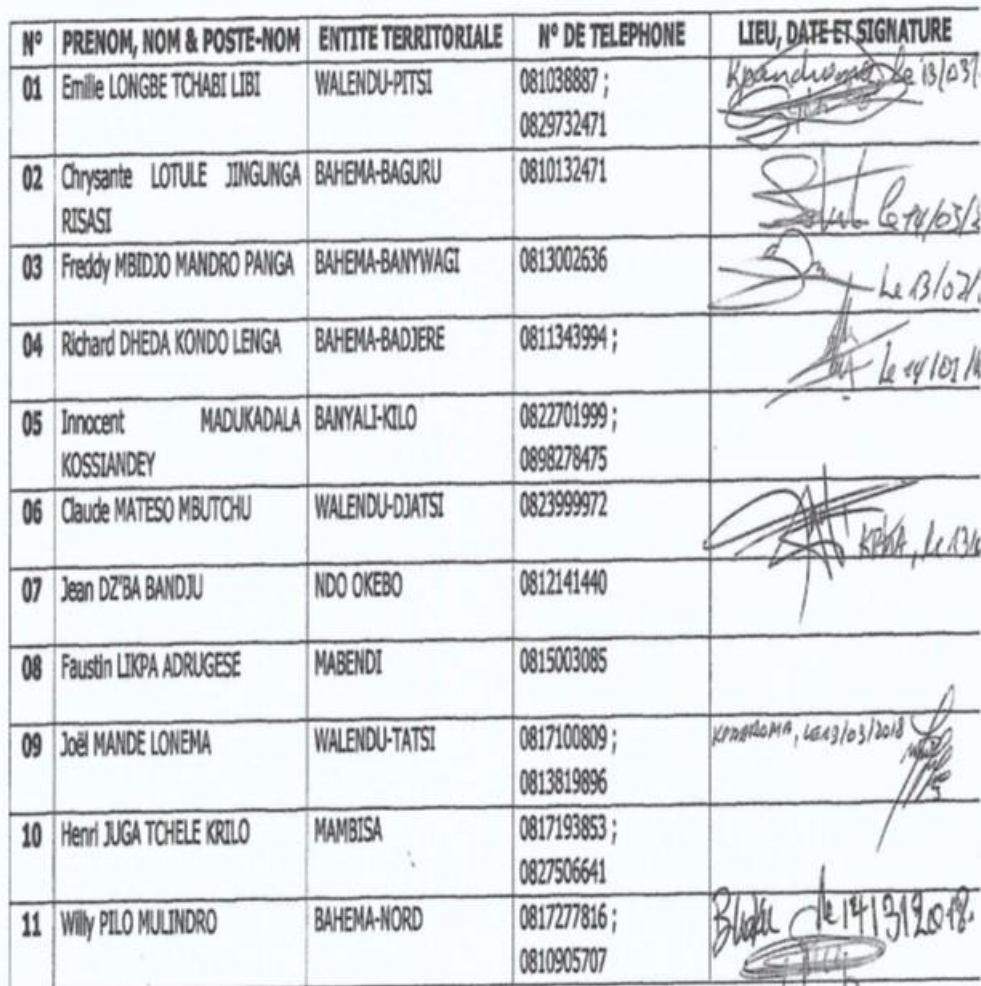 N° PRENOM, NOM & POSTE-NOM ENTITE TERRITORIALE N° DE TELEPHONE LIEU, DATE ET SIGNATURE
01 Emille LONGBE TCHABI LIBI WALENDU-PITSI 081038887 ; Kpandroma, le 13/03/
0829732471
02 Chrysante LOTULE JINGUNGA BAHEMA-BAGURU 0810132471
RISASI le 14/03/
03 Freddy MBIDJO MANDRO PANGA BAHEMA-BANYWAGI 0813002636
Le 13/03/
04 Richard DHEDA KONDO LENGA BAHEMA-BADJERE 0811343994 ;
Le 14/03/
05 Innocent MADUKADALA BANYALI-KILO 0822701999 ;
KOSSIANDEY 0898278475
06 Claude MATESO MBUTCHU WALENDU-DJATSI 0823999972
le 13/
07 Jean DZ'BA BANDJU NDO OKEBO 0812141440
08 Faustin LIKPA ADRUGESE MABENDI 0815003085
09 Joël MANDE LONEMA WALENDU-TATSI 0817100809 ; KPANDROMA, LE 13/03/2018
0813819896
10 Henri JUGA TCHELE KRILO MAMBISA 0817193853 ;
0827506641
11 Willy PILO MULINDRO BAHEMA-NORD 0817277816 ; le 14/3/2018
0810905707